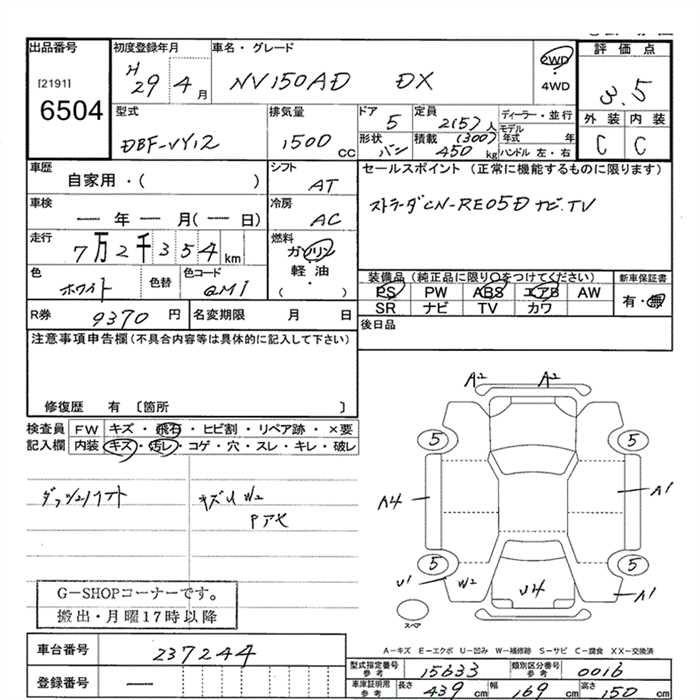 出品番号 初度登録年月 車名・グレード 評価点
[2191] H29 4月 NV150AD DX 2WD・4WD 3.5
6504
型式 排気量 ドア 5 定員 2(5)人 ディーラー・並行 外装 内装
DBF-VY12 1500 CC 形状 バン 積載 (300) 450 kg モデル年式 年 ハンドル 左・右 C C
車歴 シフト セールスポイント (正常に機能するものに限ります)
自家用・( ) AT
ストラーダCN-RE05D ナビTV
車検 冷房
― 年 ― 月(― 日) AC
走行 燃料
7万2千354km ガソリン
軽油
・
( )
色 色替 色コード
ホワイト QM1
装備品 (純正品に限り〇をつけてください) 新車保証書
PS PW ABS エアB AW 有・無
SR ナビ TV カワ
R券 9370円 名変期限 月 日 後日品
注意事項申告欄(不具合内容等は具体的に記入して下さい)
修復歴 有 〔箇所 〕
検査員 FW キズ・飛石・ヒビ割・リペア跡・×要
記入欄 内装 キズ・汚レ・コゲ・穴・スレ・キレ・破レ
キズU W2
Pアセ
A2 A2
5 5
A4 A1
5 5
U1 W2 U4 A1
スペア
G-SHOPコーナーです。
搬出・月曜17時以降
A-キズ E-エクボ U-凹み W-補修跡 S-サビ C-腐食 XX-交換済
車台番号 237244
型式指定番号 参考 15633 類別区分番号 参考 0016
登録番号 ― ―
車庫証明用 参考 長さ 439cm 幅 169cm 高さ 150cm